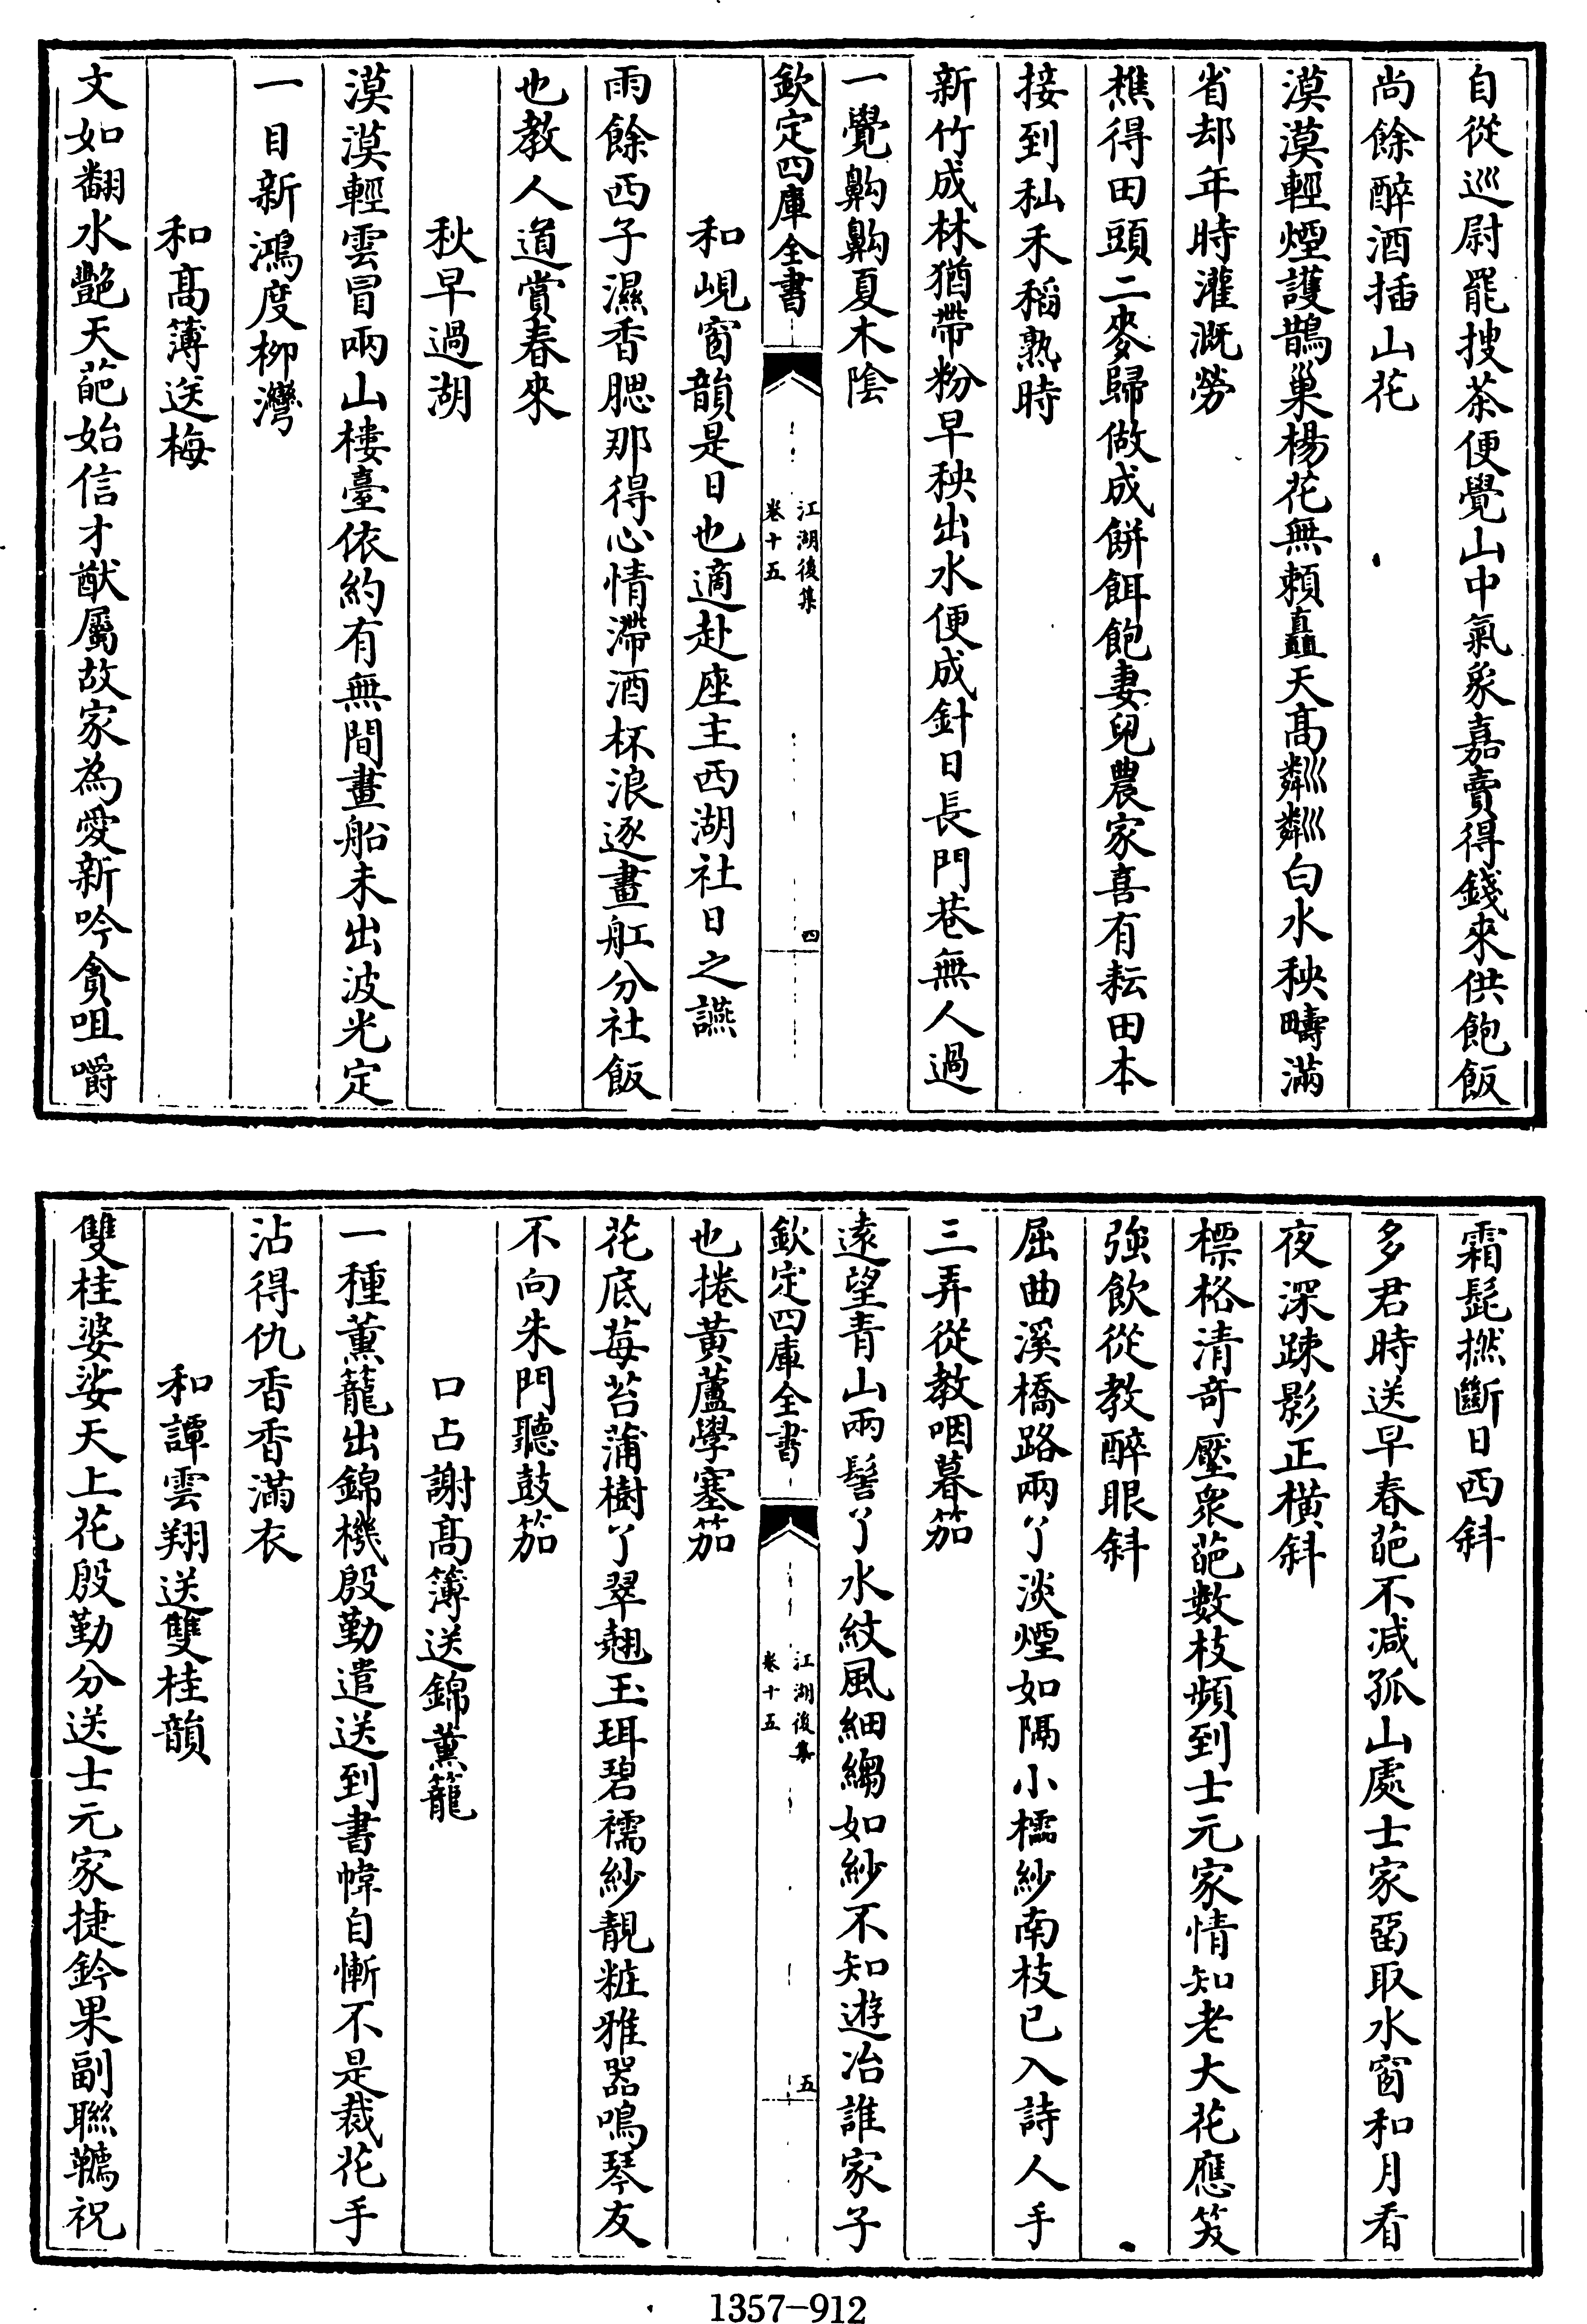 自從巡尉罷搜茶便覺山中氣象嘉賣得錢來供飽飯
尚餘醉酒插山花
漠漠輕煙護鵲巢楊花無賴矗天高粼粼白水秧疇滿
省却年時灌溉勞
樵得田頭二麥歸做成餅餌飽妻兒農家喜有耘田本
接到秈禾稻熟時
新竹成林猶帶粉早秧出水便成針日長門巷無人過
一覺齁齁夏木陰
欽定四庫全書
江湖後集
卷十五
四
和峴窗韻是日也適赴座主西湖社日之讌
雨餘西子濕香腮那得心情滯酒杯浪逐畫舡分社飯
也教人道賞春來
秋早過湖
漠漠輕雲冒兩山樓臺依約有無間畫船未出波光定
一目新鴻度柳灣
和高簿送梅
文如翻水艷天葩始信才猷屬故家為愛新吟貪咀嚼
霜髭撚斷日西斜
多君時送早春葩不減孤山處士家留取水窗和月看
夜深踈影正橫斜
標格清奇壓衆葩數枝頻到士元家情知老大花應笑
強飲從教醉眼斜
屈曲溪橋路兩丫淡煙如隔小櫺紗南枝已入詩人手
三弄從教咽暮笳
遠望青山兩髻丫水紋風細縐如紗不知遊冶誰家子
欽定四庫全書
江湖後集
卷十五
五
也捲黃蘆學塞笳
花底莓苔蒲樹丫翠翹玉珥碧襦紗靚粧雅器鳴琴友
不向朱門聽鼓笳
口占謝高簿送錦薰籠
一種薰籠出錦機殷勤遣送到書幃自慚不是裁花手
沾得仇香香滿衣
和譚雲翔送雙桂韻
雙桂婆娑天上花殷勤分送士元家捷鈐果副聯鑣祝
1357-912